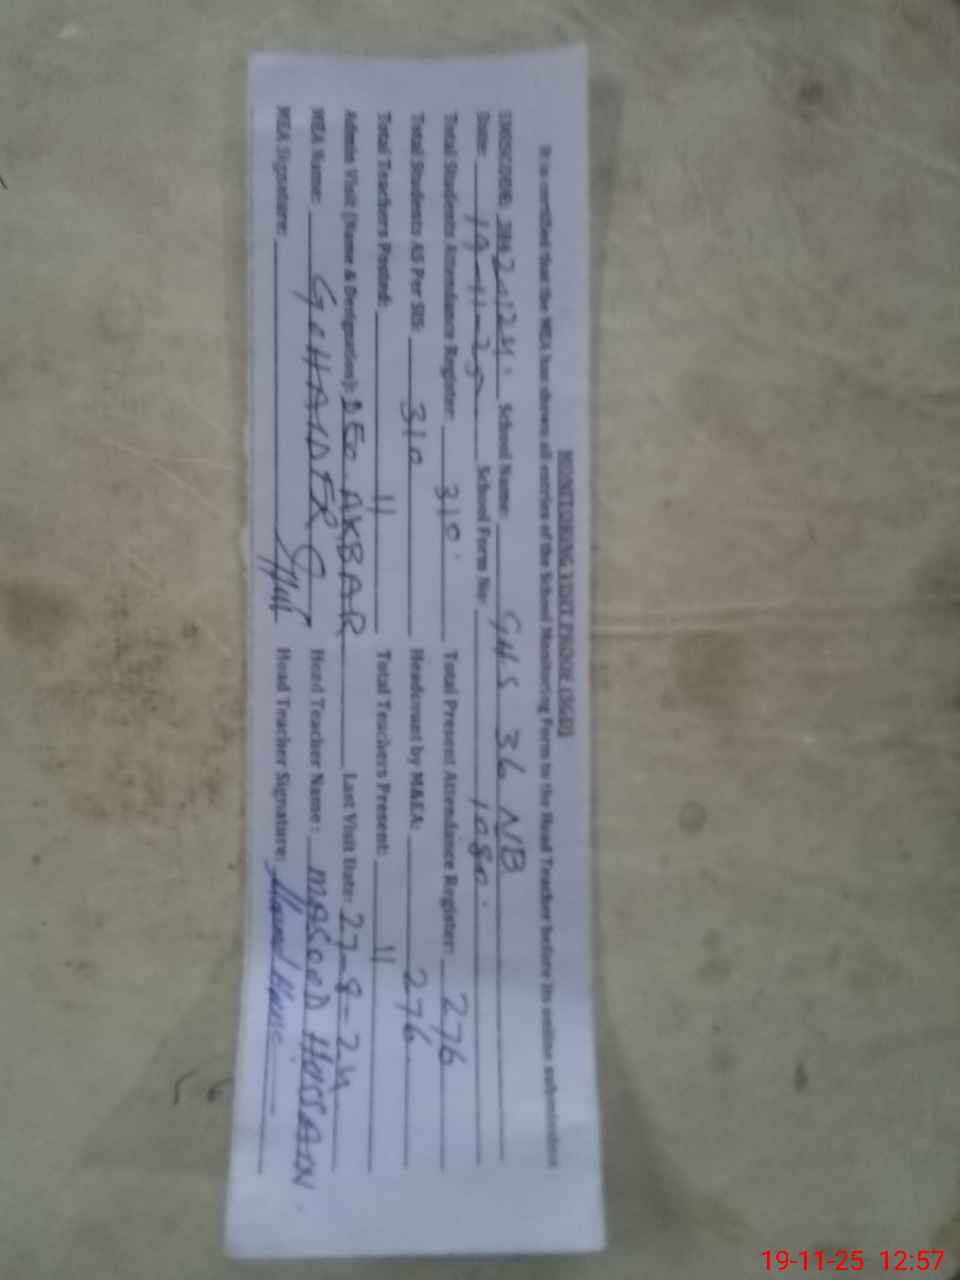 MONITORING VISIT PROFORMA (SGD)
It is certified that the MEA has shown all entries of the School Monitoring Form to the Head Teacher before its online submission
EMISCODE: School Name: GHS 36 NB
Date: 19-11-25 School Form No: 1080.
Total Students Attendance Register: 310. Total Present Attendance Register: 276
Total Students AS Per SIS: 310 Headcount by M&EA: 276
Total Teachers Posted: 11 Total Teachers Present: 11
Admin Visit (Name & Designation): DEO AKBAR Last Visit Date: 27-9-24
MEA Name: Head Teacher Name: MASOOD HASSAIN
MEA Signature: Head Teacher Signature:
19-11-25 12:57